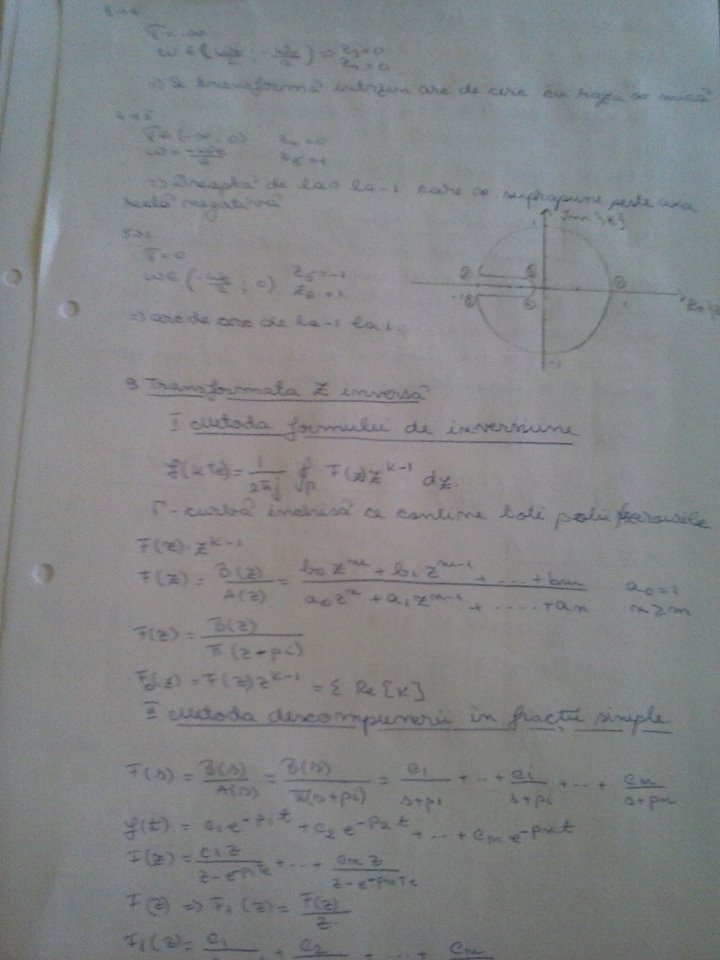 σ = -∞
ω ∈ ( ; -ωe/2) => z3 = 0
z4 = 0
=> Se transformă într-un arc de cerc cu raza ∞ mică
4→5
σ ∈ (-∞, 0) z4 = 0
ω = -ωe/2 z5 = -1
=> Dreaptă de la 0 la -1 care se suprapune peste axa
reală negativă
Im {z}
5→
σ = 0
ω ∈ (-ωe/2 ; 0) z5 = -1
z6 = 1
-1 1
=> arc de cerc de la -1 la 1.
-1
9. Transformata Z inversă
I Metoda formulei de inversiune
f(kTe) = 1/2πj ∮Γ F(z) z^k-1 dz.
Γ - curbă închisă ce conține toți polii
F(z)·z^k-1
F(z) = B(z)/A(z) = b0 z^m + b1 z^m-1 + .... + bm / a0 z^n + a1 z^n-1 + ..... + an a0 = 1
n ≥ m
F(z) = B(z)/π(z-pi)
= F(z) z^k-1 = Σ Re [k]
II Metoda descompunerii în fracții simple
F(s) = B(s)/A(s) = B(s)/π(s+pi) = c1/s+p1 + ... + ci/s+pi + ... + cn/s+pn
f(t) = c1 e^-p1t + c2 e^-p2t + ... + cn e^-pnt
F(z) = c1 z/z-e^-p1Te + ... + cn z/z-e^-pnTe
F(z) => F1(z) = F(z)/z
F1(z) = c1 + c2 + ... + cn